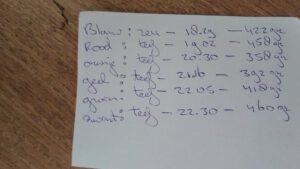 Blauw: reu - 18.29 - 422 gr
Rood: teef - 19.02 - 458 gr
oranje: teef - 20.30 - 358 gr
geel: teef - 21.16 - 392 gr
groen: teef - 22.05 - 418 gr
zwart: teef - 22.30 - 460 gr